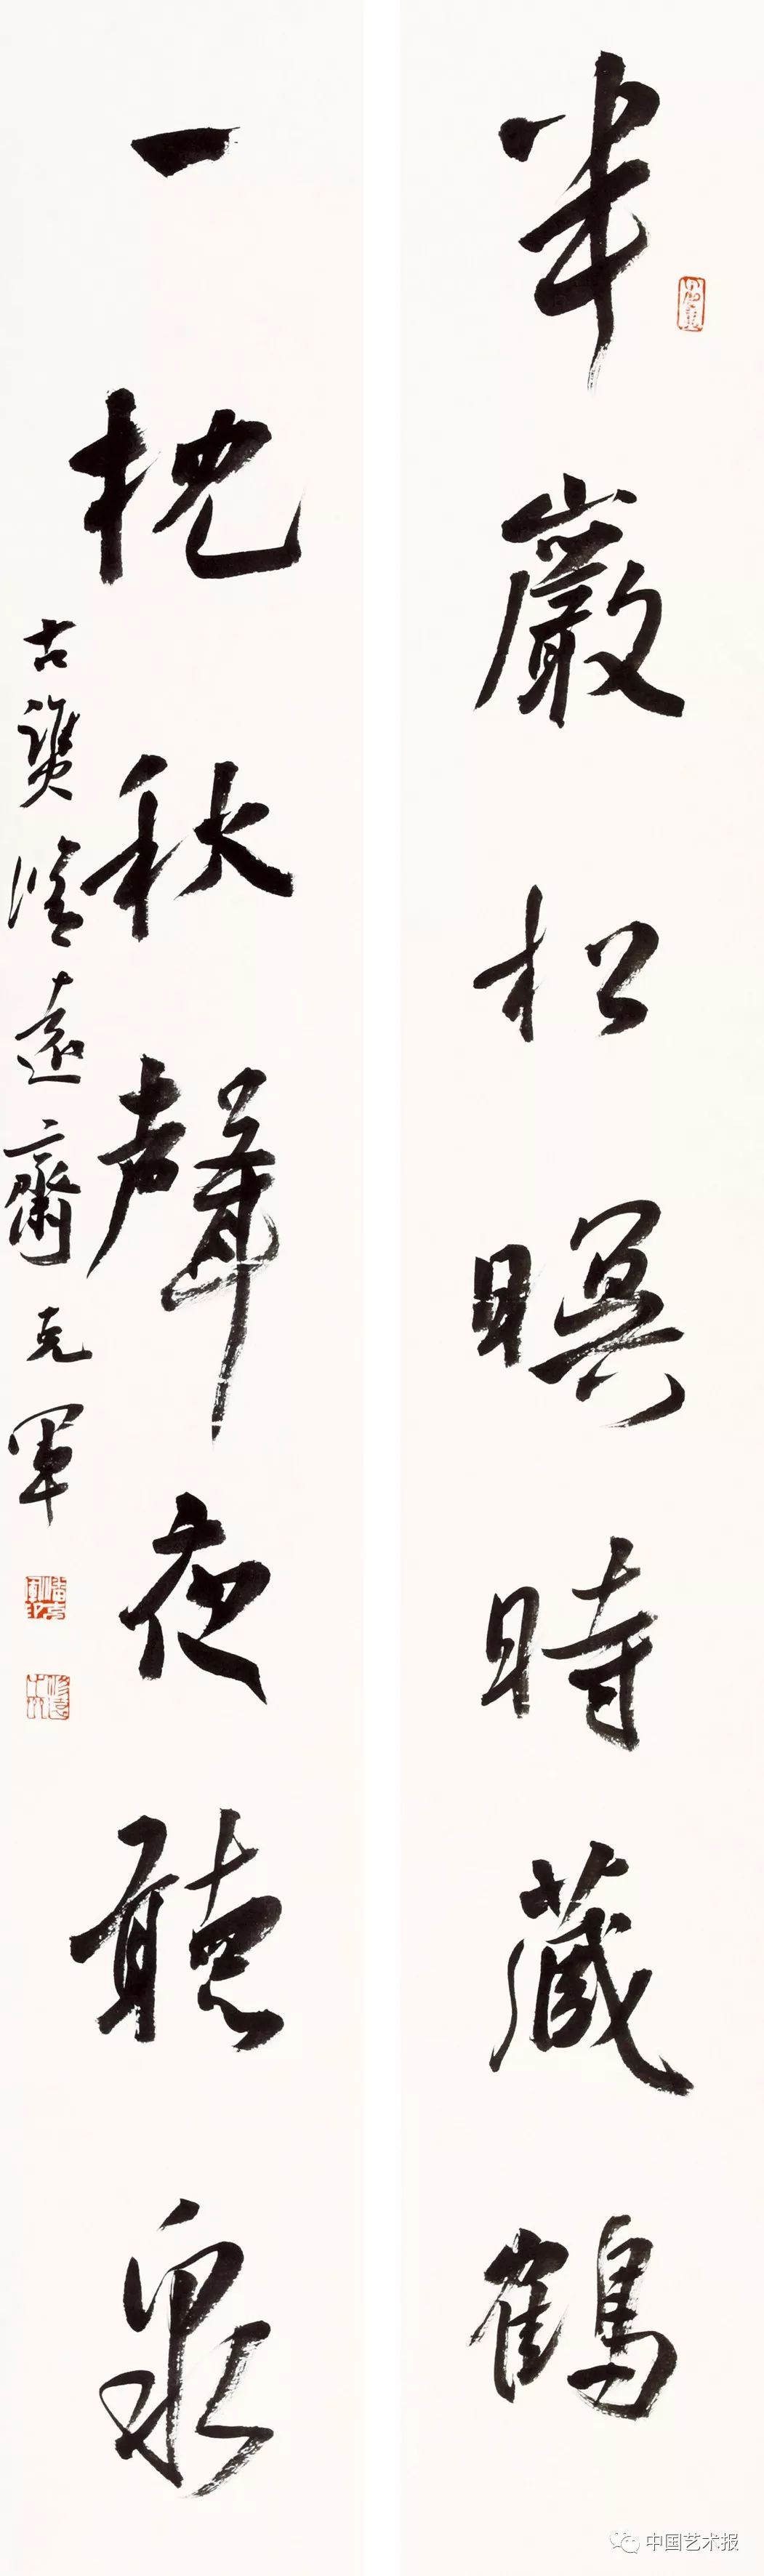 半巖松暝時藏鶴
一枕秋聲夜聽泉
古冀修遠齋克軍
中国艺术报